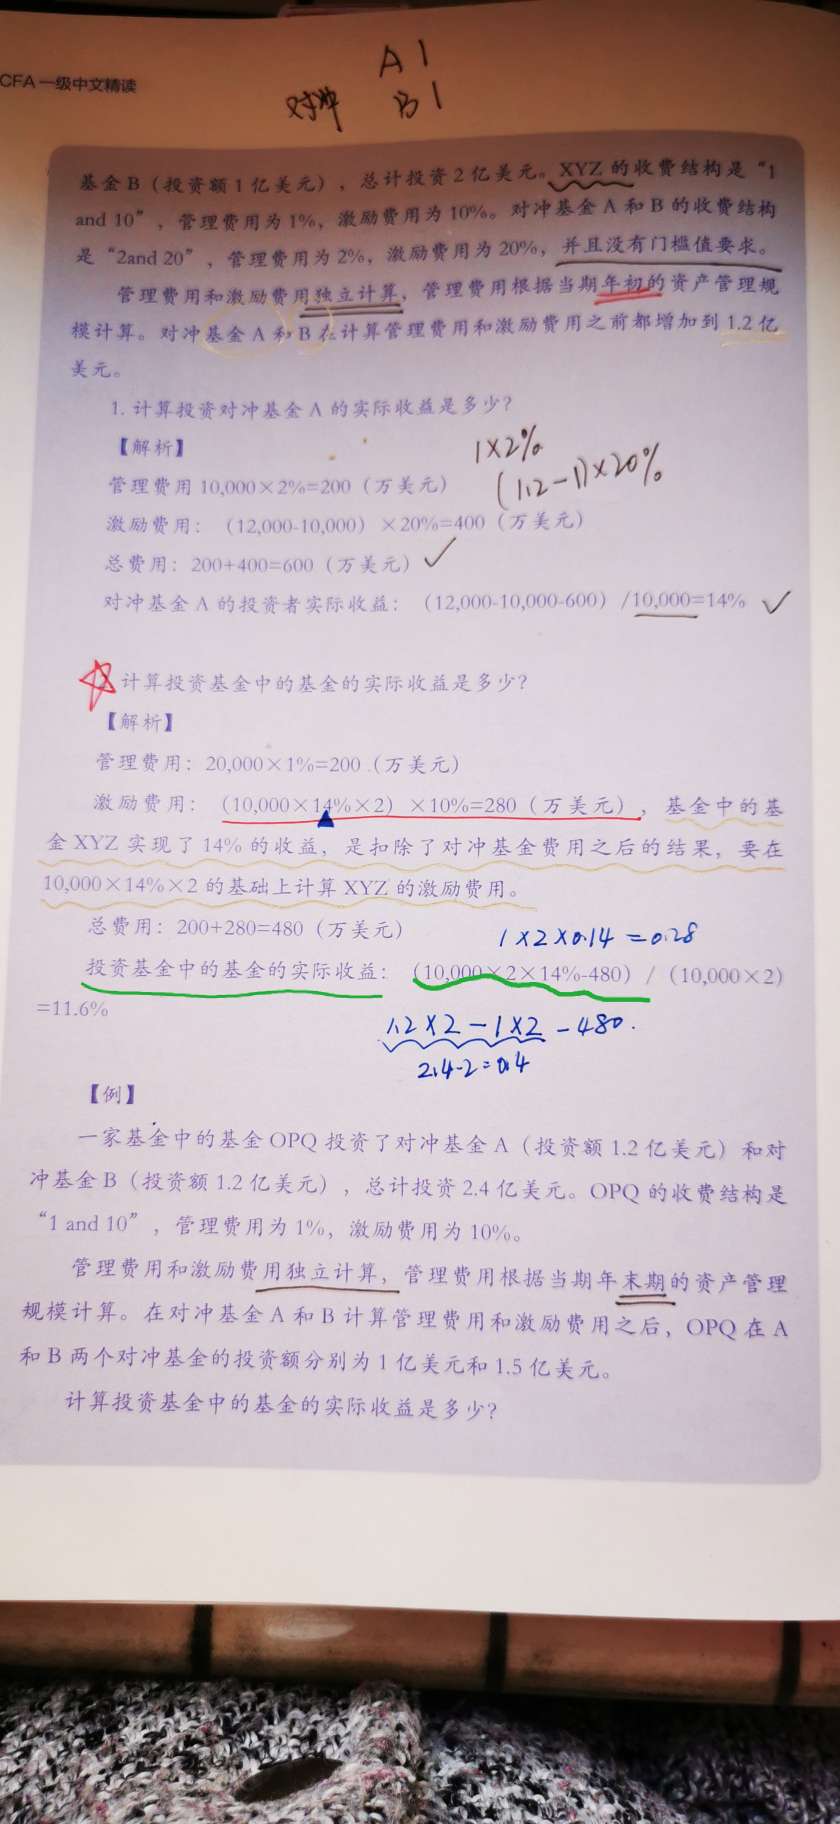 CFA一级中文精读
A 1
对冲 B 1
基金B（投资额1亿美元），总计投资2亿美元。XYZ的收费结构是“1
and 10”，管理费用为1%，激励费用为10%。对冲基金A和B的收费结构
是“2and 20”，管理费用为2%，激励费用为20%，并且没有门槛值要求。
管理费用和激励费用独立计算，管理费用根据当期年初的资产管理规
模计算。对冲基金A和B在计算管理费用和激励费用之前都增加到1.2亿
美元。
1. 计算投资对冲基金A的实际收益是多少？
【解析】
1×2%
管理费用10,000×2%=200（万美元）
(1.2-1)×20%
激励费用：（12,000-10,000）×20%=400（万美元）
总费用：200+400=600（万美元）✓
对冲基金A的投资者实际收益：（12,000-10,000-600）/10,000=14% ✓
计算投资基金中的基金的实际收益是多少？
【解析】
管理费用：20,000×1%=200（万美元）
激励费用：（10,000×14%×2）×10%=280（万美元），基金中的基
金XYZ实现了14%的收益，是扣除了对冲基金费用之后的结果，要在
10,000×14%×2的基础上计算XYZ的激励费用。
总费用：200+280=480（万美元）
1×2×0.14=0.28
投资基金中的基金的实际收益：（10,000×2×14%-480）/（10,000×2）
=11.6%
1.2×2-1×2-480.
2.4-2=0.4
【例】
一家基金中的基金OPQ投资了对冲基金A（投资额1.2亿美元）和对
冲基金B（投资额1.2亿美元），总计投资2.4亿美元。OPQ的收费结构是
“1 and 10”，管理费用为1%，激励费用为10%。
管理费用和激励费用独立计算，管理费用根据当期年末期的资产管理
规模计算。在对冲基金A和B计算管理费用和激励费用之后，OPQ在A
和B两个对冲基金的投资额分别为1亿美元和1.5亿美元。
计算投资基金中的基金的实际收益是多少？